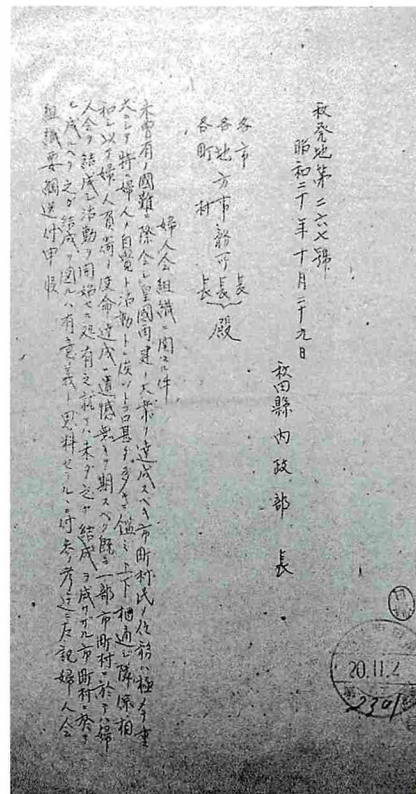 秋發地第二六七號
昭和二十年十月二十九日
秋田縣內政部長
各市長
各地方事務所長殿
各町村長
婦人会組織ニ関スル件
未曽有ノ國難ニ際会シ皇國再建ノ大業ヲ達成スベキ市町村民ノ任務ハ極メテ重
大ニシテ特ニ婦人ノ自覚ト活動トニ俟ツトコロ甚ダ多キニ鑑ミ上下相通ジ隣保相
和シ以テ婦人負荷ノ使命達成ニ遺憾無キヲ期スベク既ニ一部市町村ニ於テハ婦
人会ヲ結成シ活動ヲ開始セル処有之就テハ未ダ之ガ結成ヲ成サザル市町村ニ於テ
モ成ルベク之ガ結成ヲ図ルハ有意義ト思料セラルルニ付参考迄ニ左記婦人会
組織要綱送付申候
20.11.2
2301